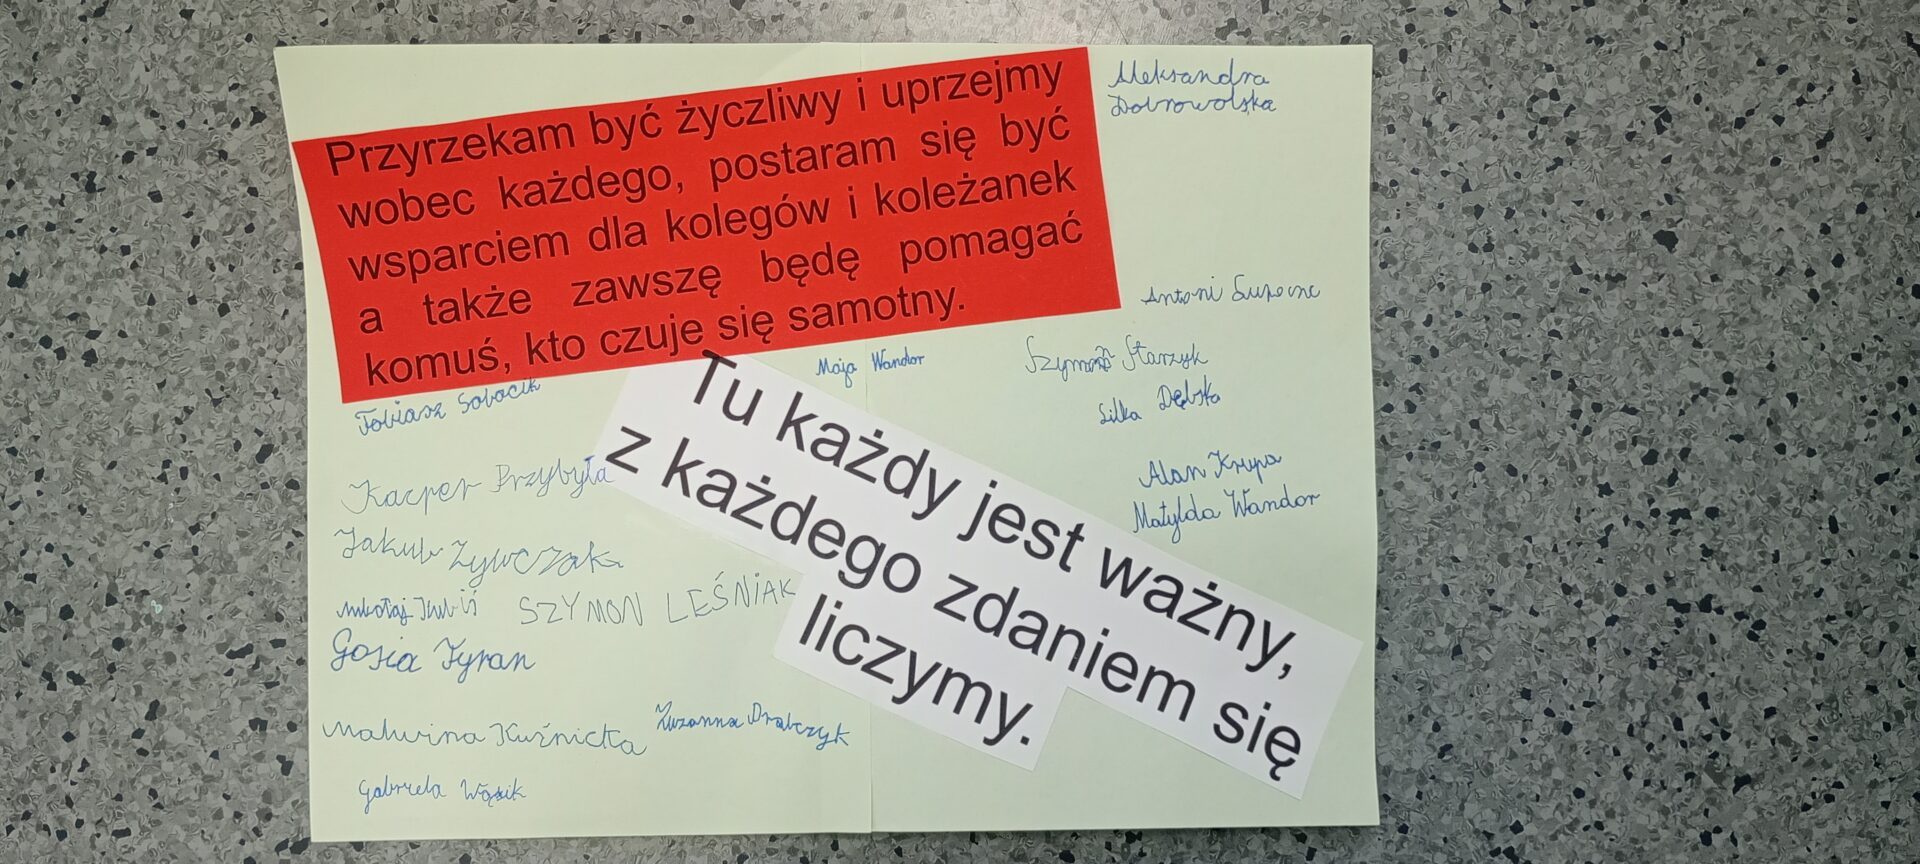 Przyrzekam być życzliwy i uprzejmy
wobec każdego, postaram się być
wsparciem dla kolegów i koleżanek
a także zawszę będę pomagać
komuś, kto czuje się samotny.
Aleksandra
Dobrowolska
Antoni
Maja Wandor
Szymon Starzyk
Tobiasz Sobocik
Lilka Dębska
Tu każdy jest ważny,
z każdego zdaniem się
liczymy.
Alan Krupa
Kacper Przybyła
Matylda Wandor
Jakub Żywczak
Mikołaj Kubiś
SZYMON LEŚNIAK
Gosia Tyran
Malwina Kuźnicka
Zuzanna Drabczyk
Gabriela Wąsik